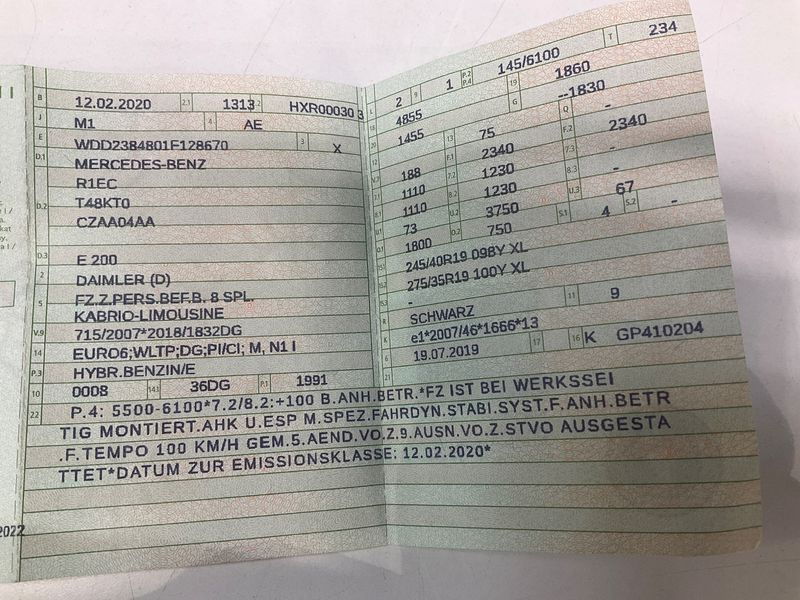 B 12.02.2020 2.1 1313 2.2 HXR00030 3
J M1 4 AE
E WDD2384801F128670 3 X
D.1 MERCEDES-BENZ
R1EC
D.2 T48KT0
CZAA04AA
D.3 E 200
2 DAIMLER (D)
5 FZ.Z.PERS.BEF.B. 8 SPL.
KABRIO-LIMOUSINE
V.9 715/2007*2018/1832DG
14 EURO6;WLTP;DG;PI/CI; M, N1 I
P.3 HYBR.BENZIN/E
10 0008 14.1 36DG P.1 1991
L 2 9 1 P.2 P.4 145/6100 T 234
18 4855 19 1860
20 1455 G --1830
12 - 13 75 Q -
188 F.1 2340 F.2 2340
7.1 1110 7.2 1230 7.3 -
8.1 1110 8.2 1230 8.3 -
U.1 73 U.2 3750 U.3 67
O.1 1800 O.2 750 S.1 4 S.2 -
15.1 245/40R19 098Y XL
15.2 275/35R19 100Y XL
15.3 -
R SCHWARZ 11 9
K e1*2007/46*1666*13
6 19.07.2019 17 16 K GP410204
21
22 P.4: 5500-6100*7.2/8.2:+100 B.ANH.BETR.*FZ IST BEI WERKSSEI
TIG MONTIERT.AHK U.ESP M.SPEZ.FAHRDYN.STABI.SYST.F.ANH.BETR
.F.TEMPO 100 KM/H GEM.5.AEND.VO.Z.9.AUSN.VO.Z.STVO AUSGESTA
TTET*DATUM ZUR EMISSIONSKLASSE: 12.02.2020*
2022